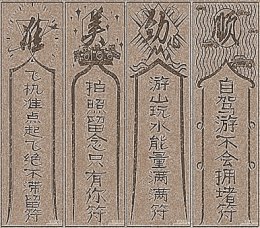 准
飞机准点起飞绝不带留符
美
拍照留念只有你符
劲
游山玩水能量满满符
顺
自驾游不会拥堵符